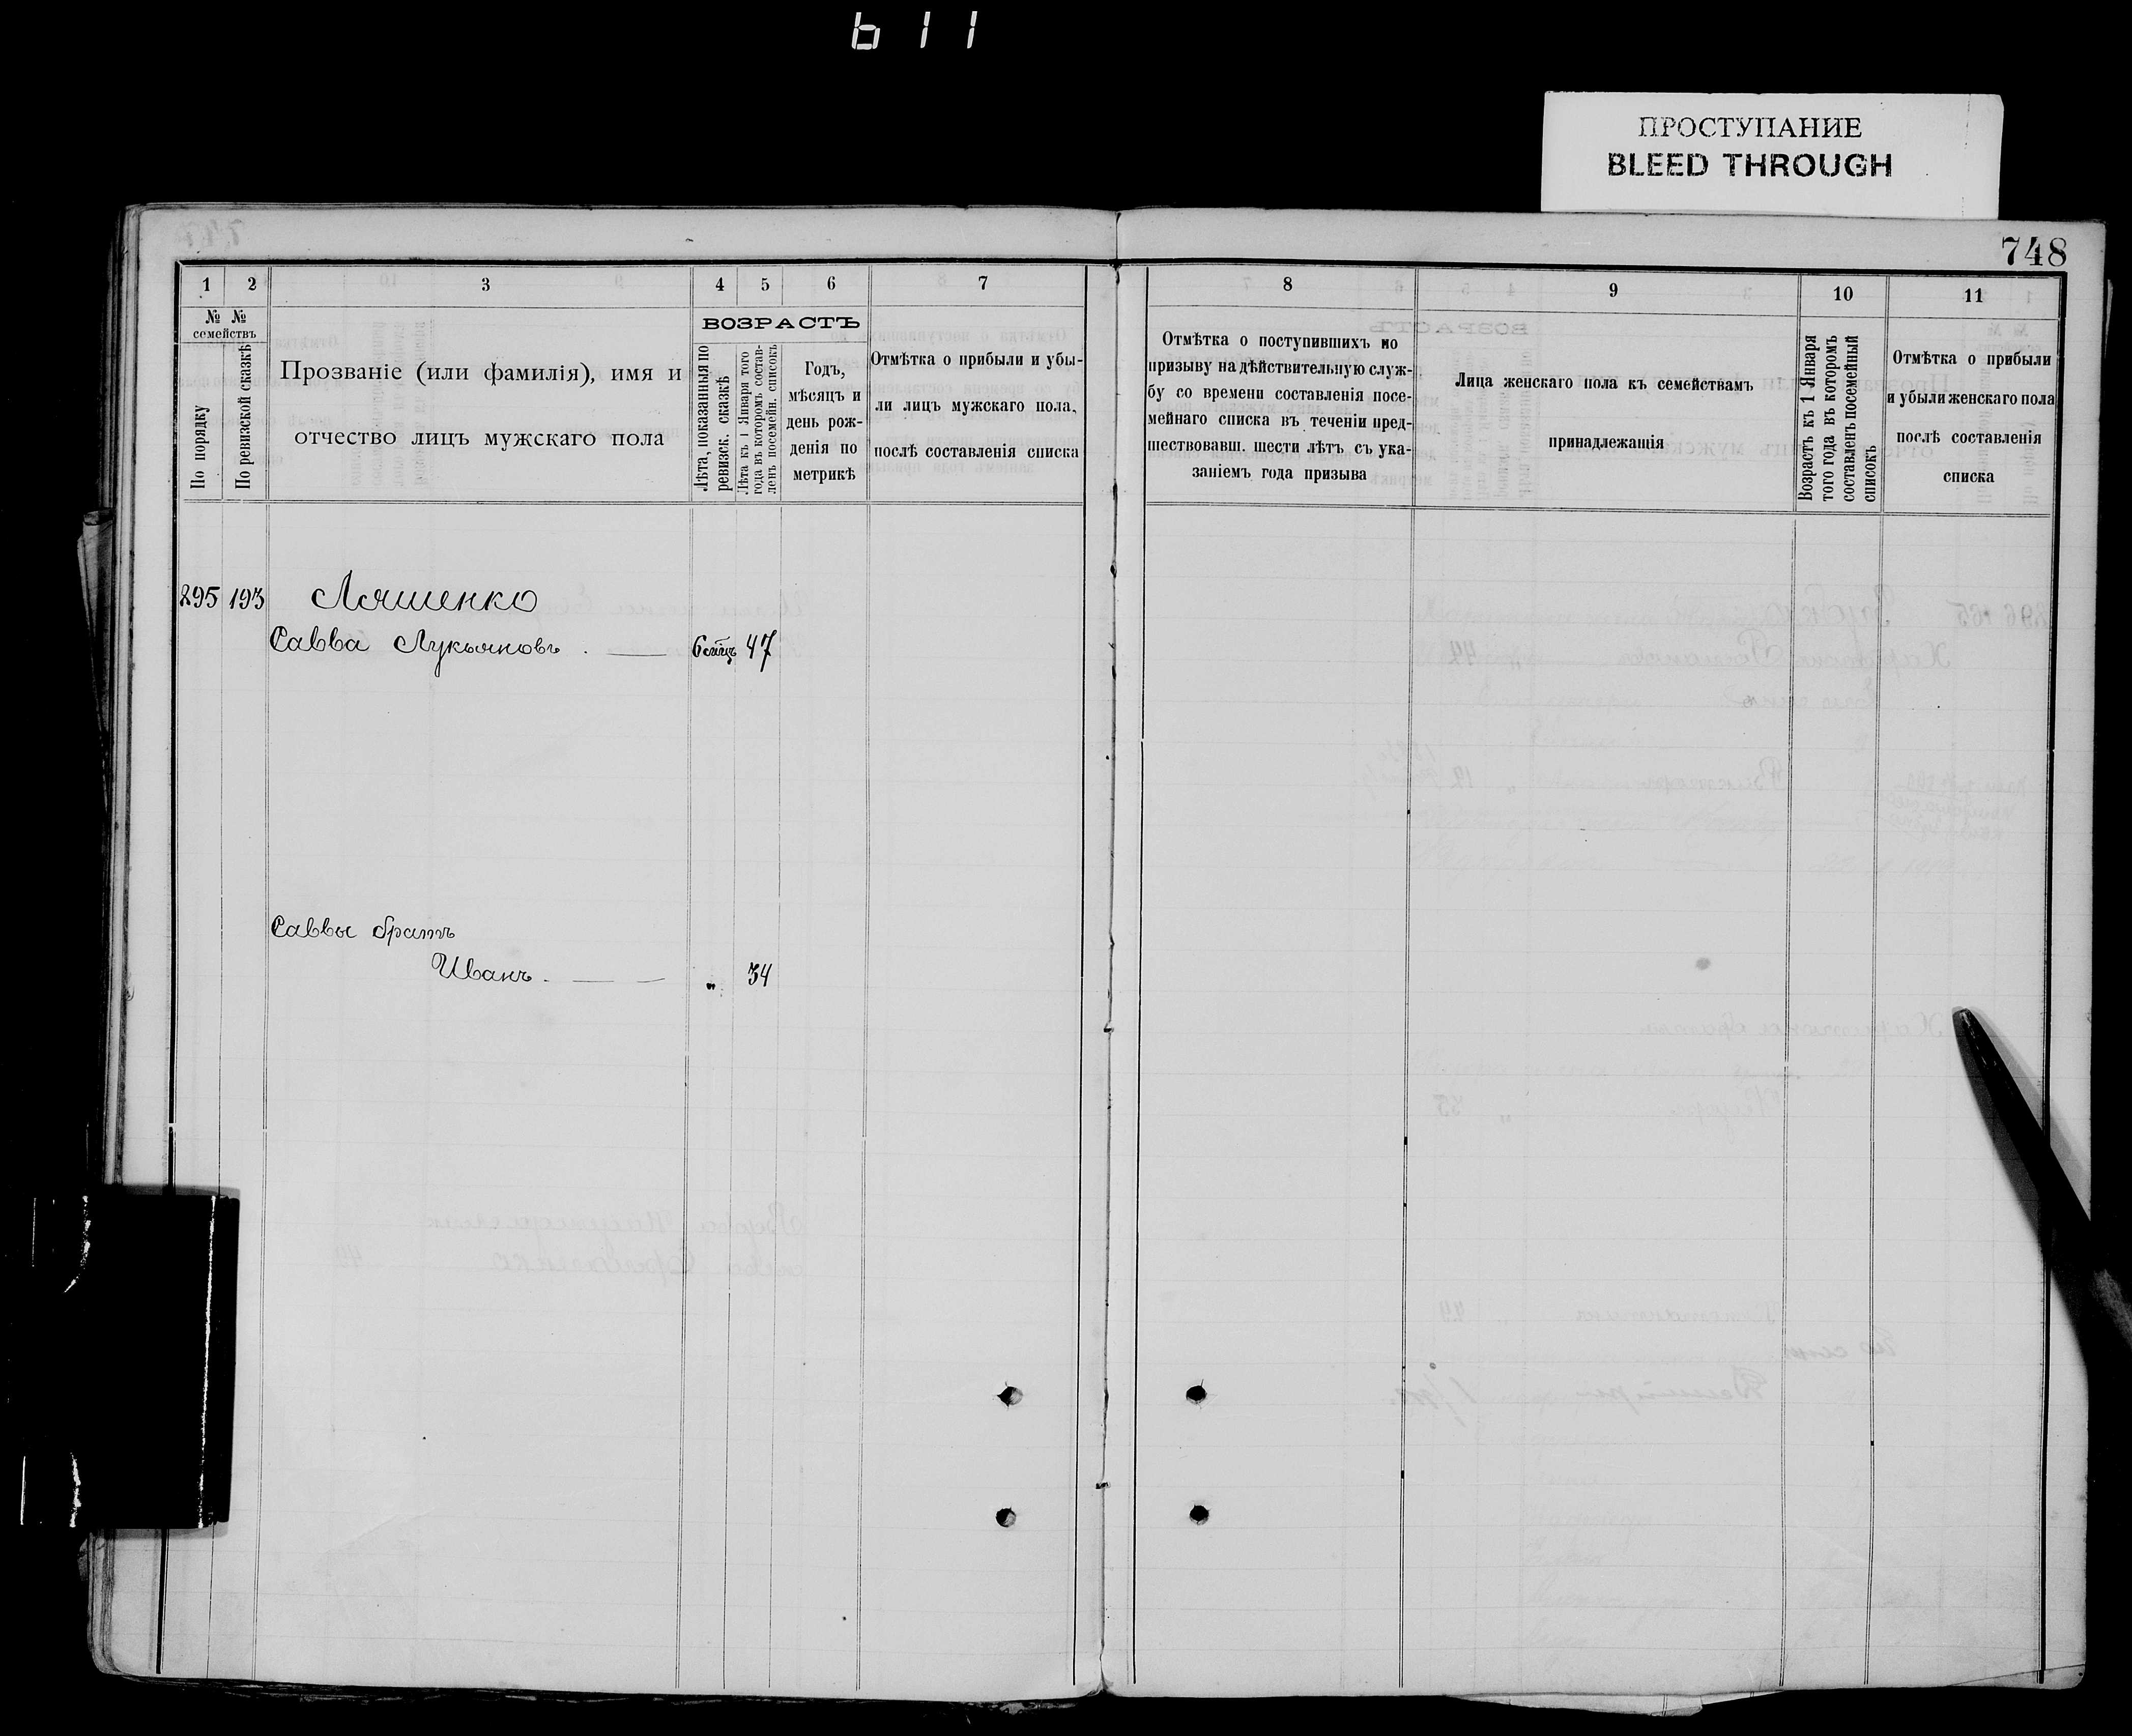 611
ПРОСТУПАНИЕ
BLEED THROUGH
748
1 2 3 4 5 6 7
№ №
семействъ
По порядку
По ревизской сказкѣ
Прозваніе (или фамилія), имя и
отчество лицъ мужскаго пола
ВОЗРАСТЪ
Лѣта, показанныя по
ревизск. сказкѣ
Лѣта къ 1 Января того
года въ которомъ состав-
ленъ посемейн. списокъ
Годъ,
мѣсяцъ и
день рож-
денія по
метрикѣ
Отмѣтка о прибыли и убы-
ли лицъ мужскаго пола,
послѣ составленія списка
8 9 10 11
Отмѣтка о поступившихъ по
призыву на дѣйствительную служ-
бу со времени составленія посе-
мейнаго списка въ теченіи пред-
шествовавш. шести лѣтъ съ ука-
заніемъ года призыва
Лица женскаго пола къ семействамъ
принадлежащія
Возрастъ къ 1 Января
того года въ которомъ
составленъ посемейный
списокъ
Отмѣтка о прибыли
и убыли женскаго пола
послѣ составленія
списка
295 193 Ляшенко
Савва Лукьяновъ . — 47
Саввы братъ
Иванъ . — — „ 34